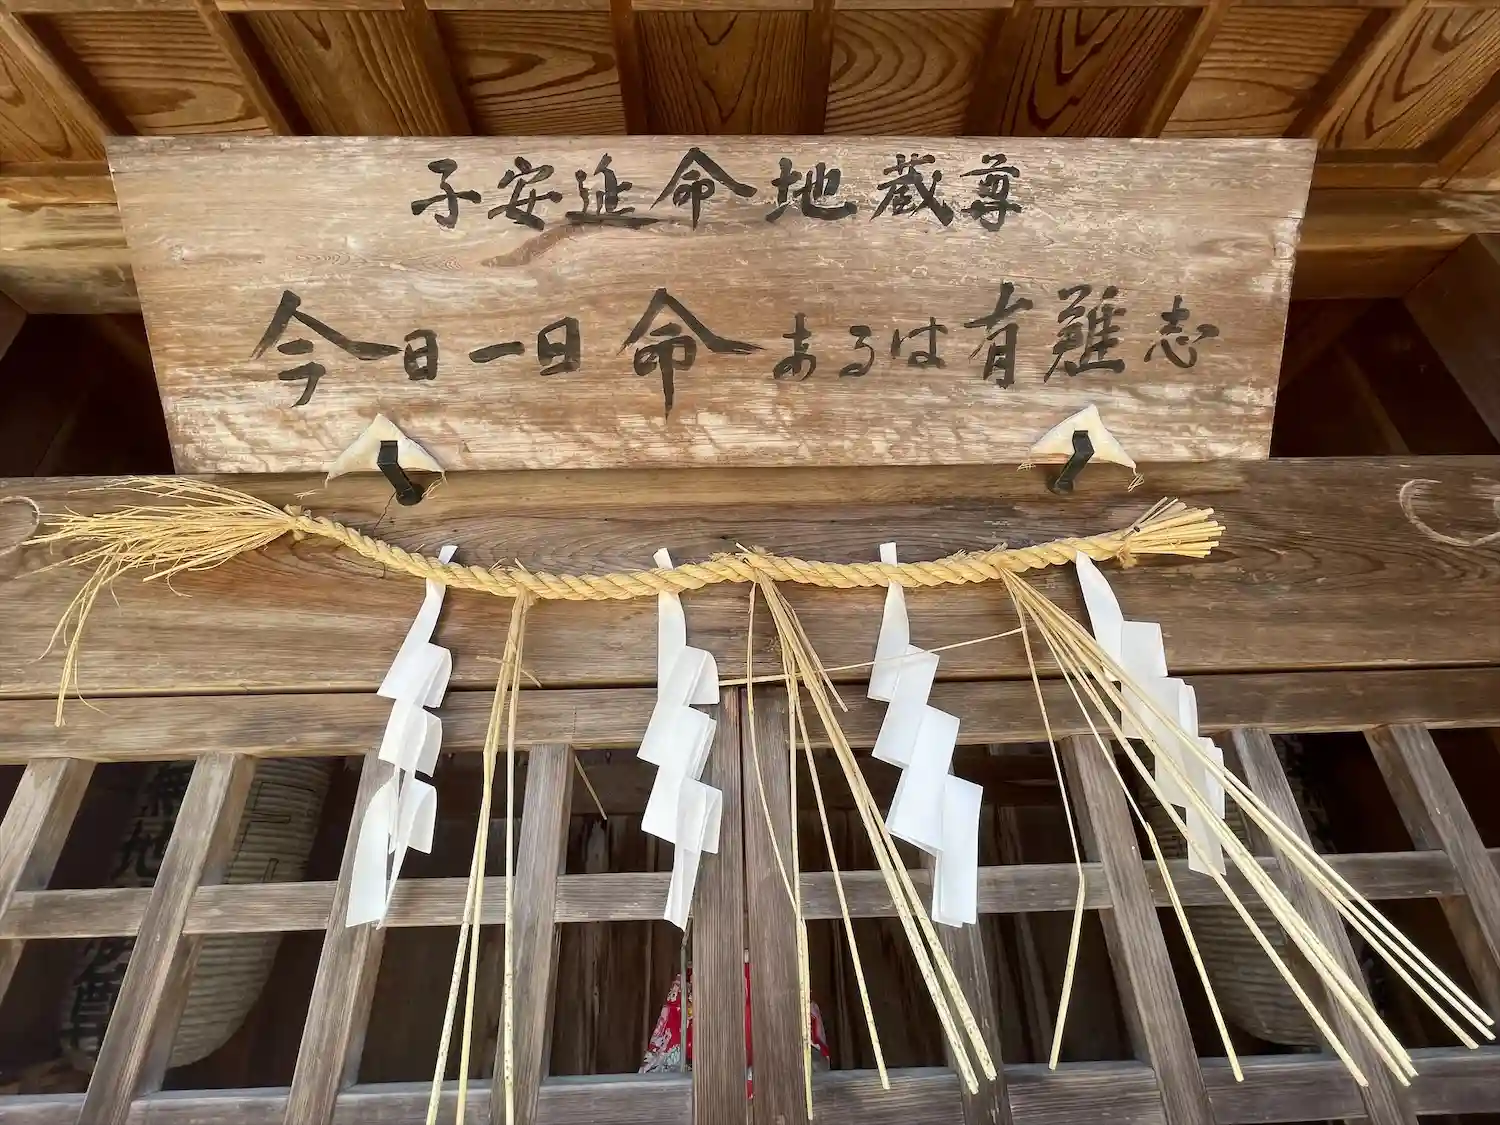 子安延命地蔵尊
今日一日命あるは有難志
地